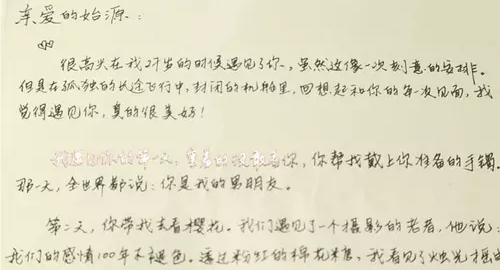 亲爱的始源:
很高兴在我27岁的时候遇见了你,虽然这像一次刻意的安排。
但是在孤独的长途飞行中,封闭的机舱里,回想起和你的每一次见面,我
觉得遇见你,真的很美好!
第一天,你,你帮我戴上你准备的手镯
那一天,全世界都说:你是我的男朋友。
第二天,你带我去看樱花。我们遇见了一个摄影的老者,他说:
我们的感情100年不褪色。透过粉红的棉花糖,我看见了烛光摇